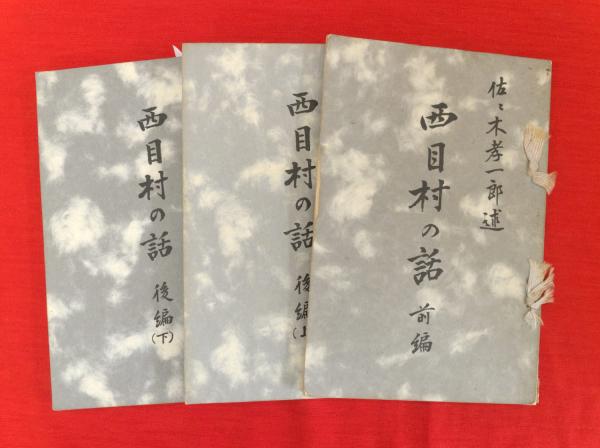 佐々木孝一郎述
西目村の話
前編
西目村の話
後編
(上
西目村の話
後編
(下)